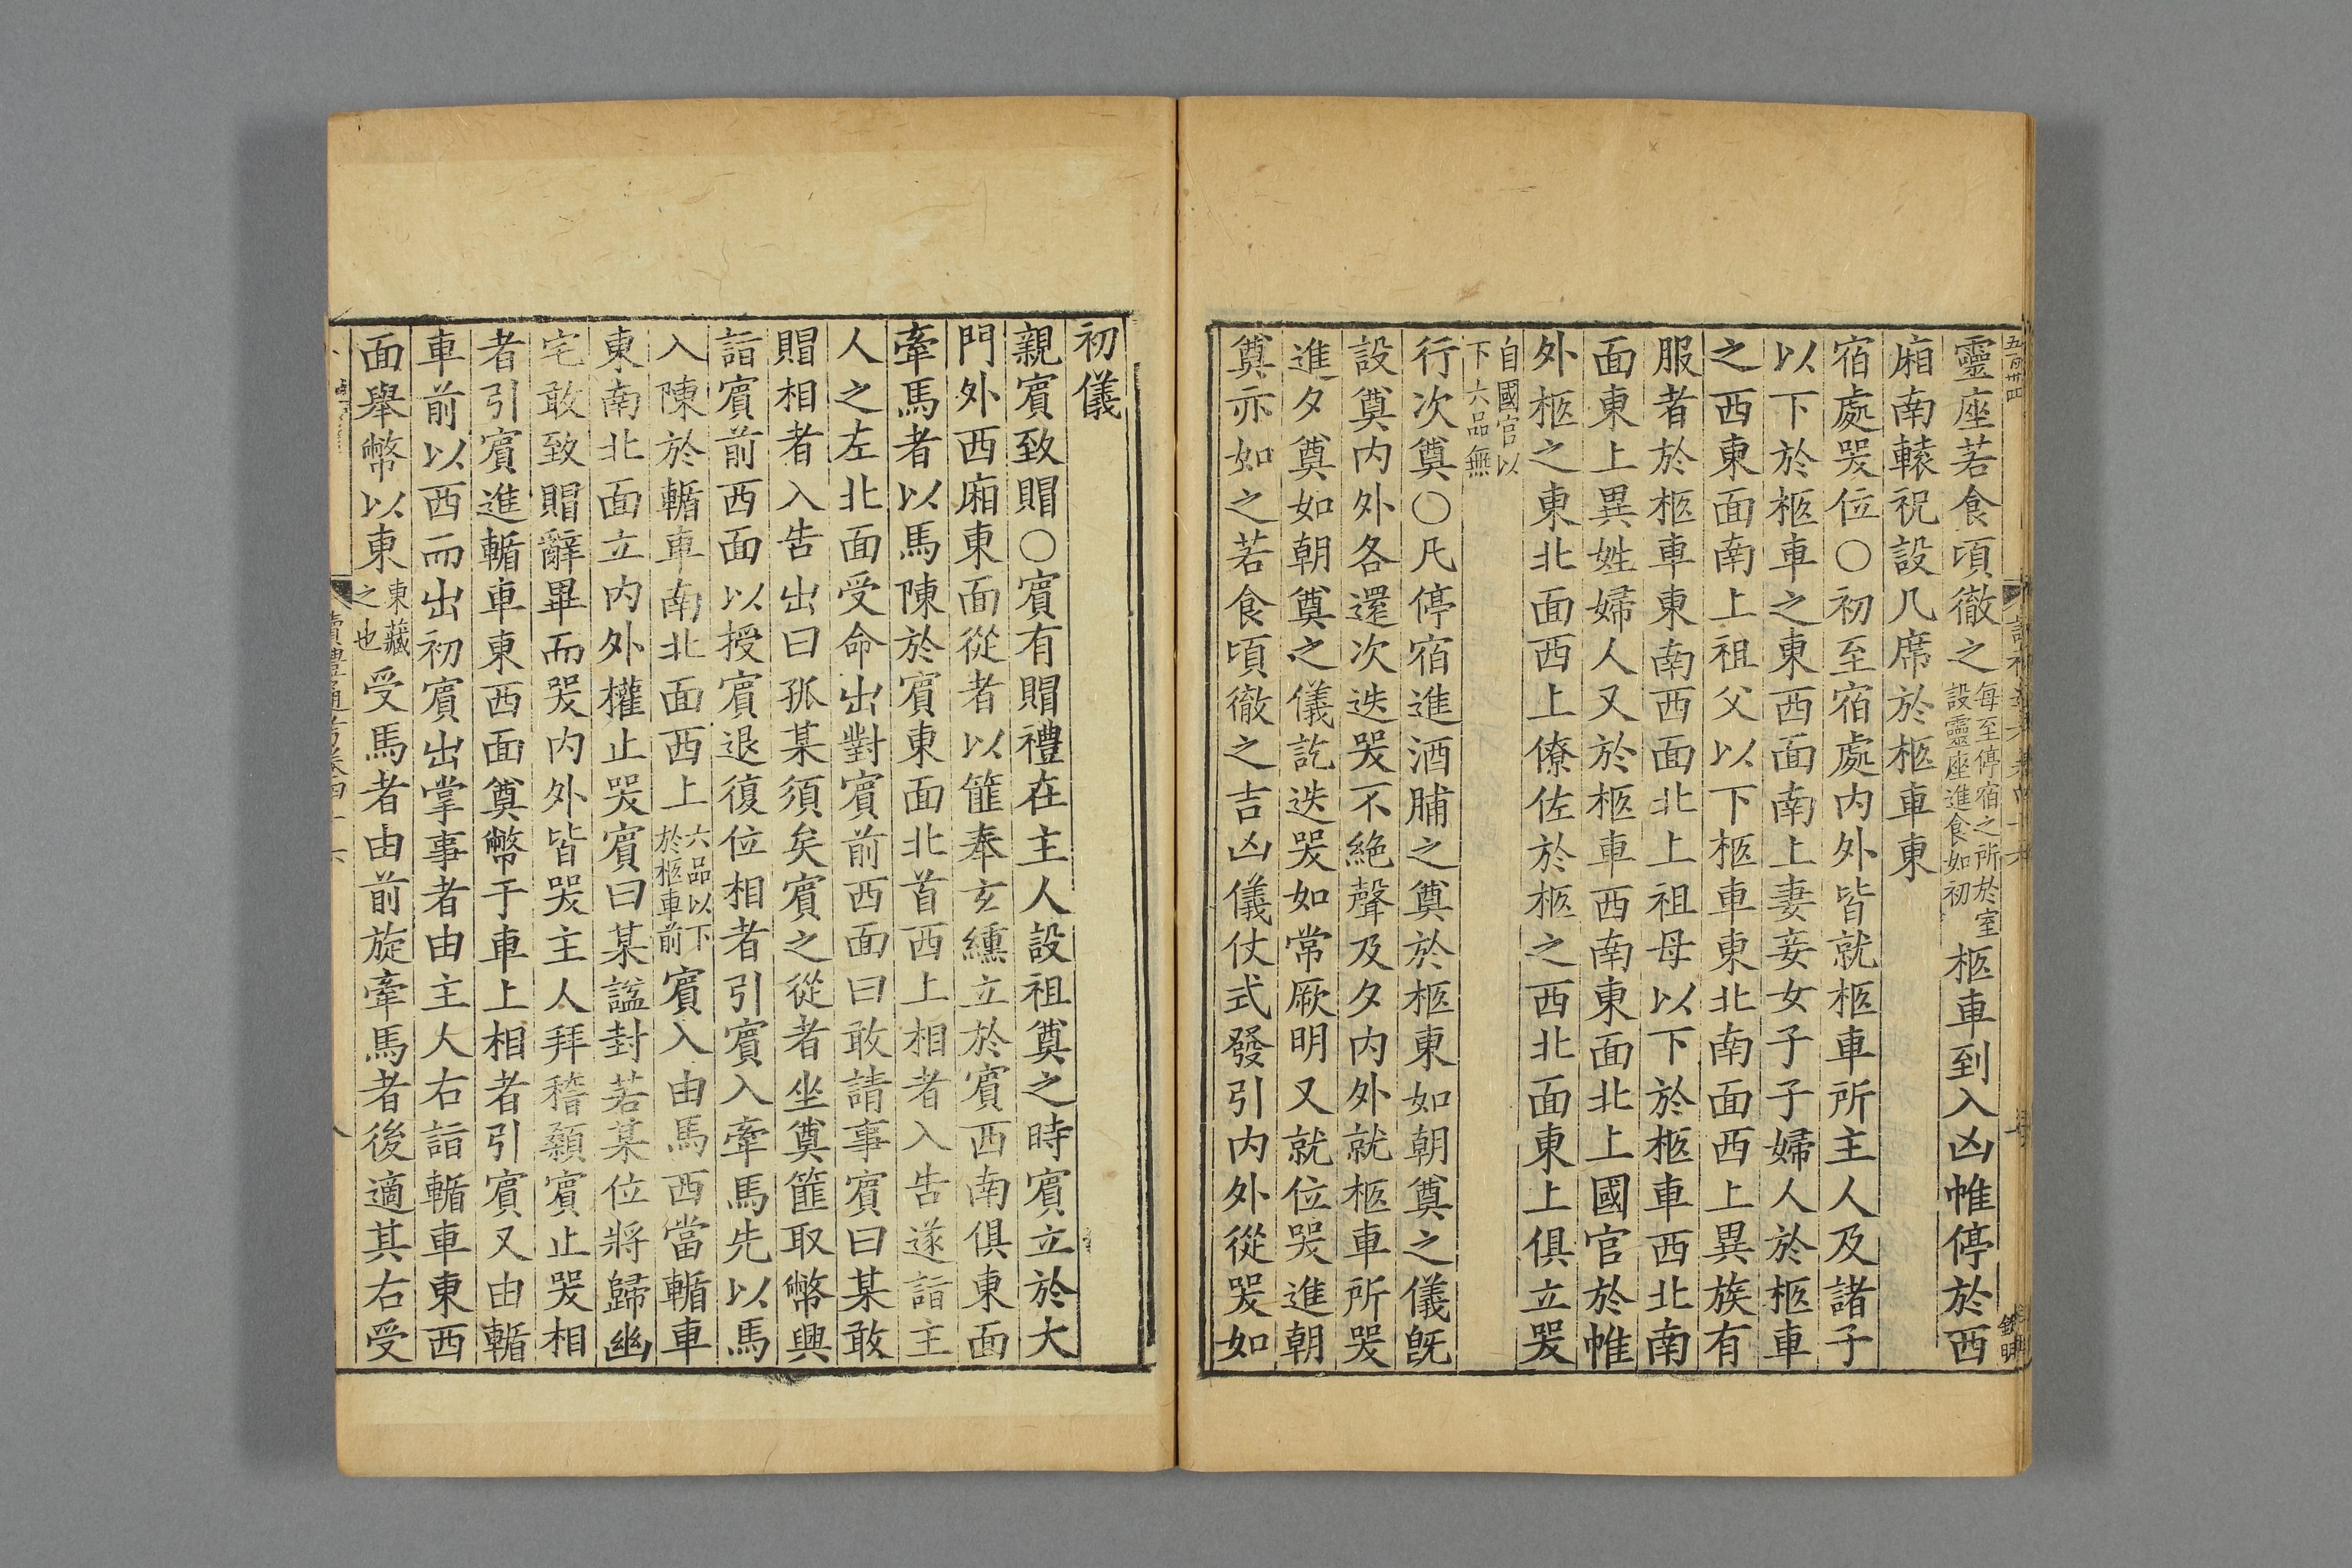 五百卅四
靈座若食頃徹之每至停宿之所於室設靈座進食如初柩車到入凶帷停於西
廂南轅祝設几席於柩車東
宿處哭位○初至宿處内外皆就柩車所主人及諸子
以下於柩車之東西面南上妻妾女子子婦人於柩車
之西東面南上祖父以下柩車東北南面西上異族有
服者於柩車東南西面北上祖母以下於柩車西北南
面東上異姓婦人又於柩車西南東面北上國官於帷
外柩之東北面西上僚佐於柩之西北面東上俱立哭
自國官以下六品無
行次奠○凡停宿進酒脯之奠於柩東如朝奠之儀旣
設奠内外各還次迭哭不絶聲及夕内外就柩車所哭
進夕奠如朝奠之儀訖迭哭如常厥明又就位哭進朝
奠亦如之若食頃徹之吉凶儀仗式發引内外從哭如
初儀
親賓致賵○賓有賵禮在主人設祖奠之時賓立於大
門外西廂東面從者以篚奉玄纁立於賓西南俱東面
牽馬者以馬陳於賓東面北首西上相者入告遂詣主
人之左北面受命出對賓前西面曰敢請事賓曰某敢
賵相者入告出曰孤某須矣賓之從者坐奠篚取幣興
詣賓前西面以授賓退復位相者引賓入牽馬先以馬
入陳於輴車南北面西上六品以下於柩車前賓入由馬西當輴車
東南北面立内外權止哭賓曰某諡封若某位將歸幽
宅敢致賵辭畢而哭内外皆哭主人拜稽顙賓止哭相
者引賓進輴車東西面奠幣于車上相者引賓又由輴
車前以西而出初賓出掌事者由主人右詣輴車東西
面舉幣以東東藏之也受馬者由前旋牽馬者後適其右受